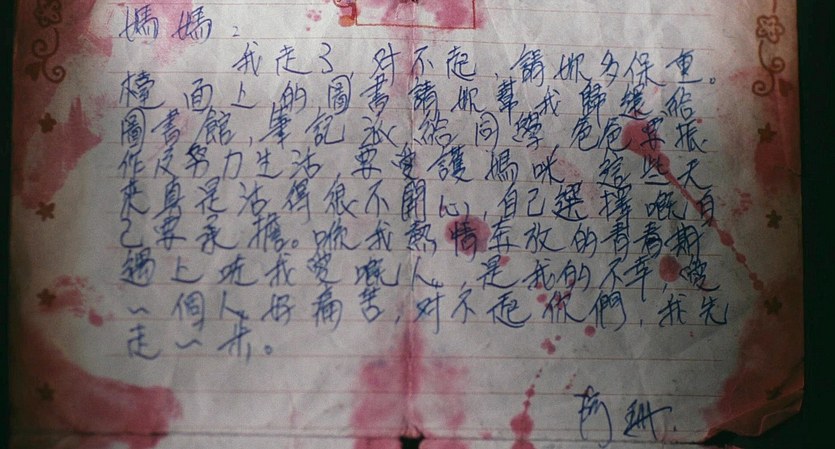 媽媽：
我走了，对不起，請妳多保重。
檯面上的圖書請妳幫我歸還給
圖書館，筆記派給同學，爸爸要振
作及努力生活，要愛護媽咪，這些天
來真是活得很不開心，自己選擇嘅自
己要承擔。喺我熱情奔放的青春期
遇上唔我愛嘅人，是我的不幸，愛
一個人好痛苦，对不起你們，我先
走一步。
阿珊